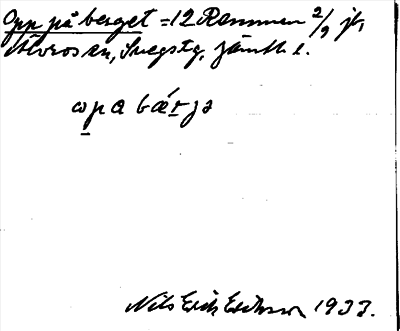 Opp på berget = 12 Remmen 2/9 jt,
Storosen, Svegstg, Jämtl l.
ɷpa bǽrjə
Nils Erik Eriksson 1933.